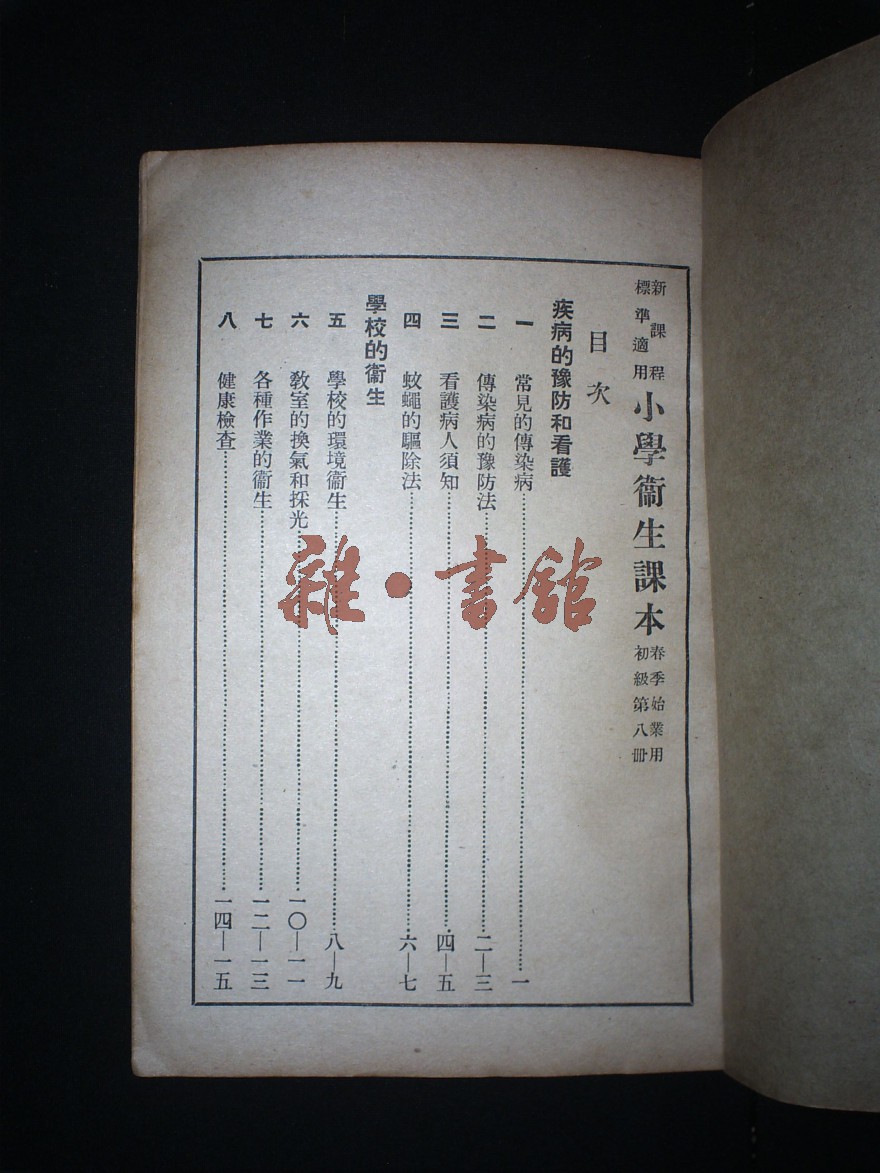 新課程標準適用 小學衞生課本 春季始業用 初級第八冊
目次
疾病的豫防和看護
一 常見的傳染病……一
二 傳染病的豫防法……二—三
三 看護病人須知……四—五
四 蚊蠅的驅除法……六—七
學校的衞生
五 學校的環境衞生……八—九
六 敎室的換氣和採光……一〇—一一
七 各種作業的衞生……一二—一三
八 健康檢查……一四—一五
雜·書館